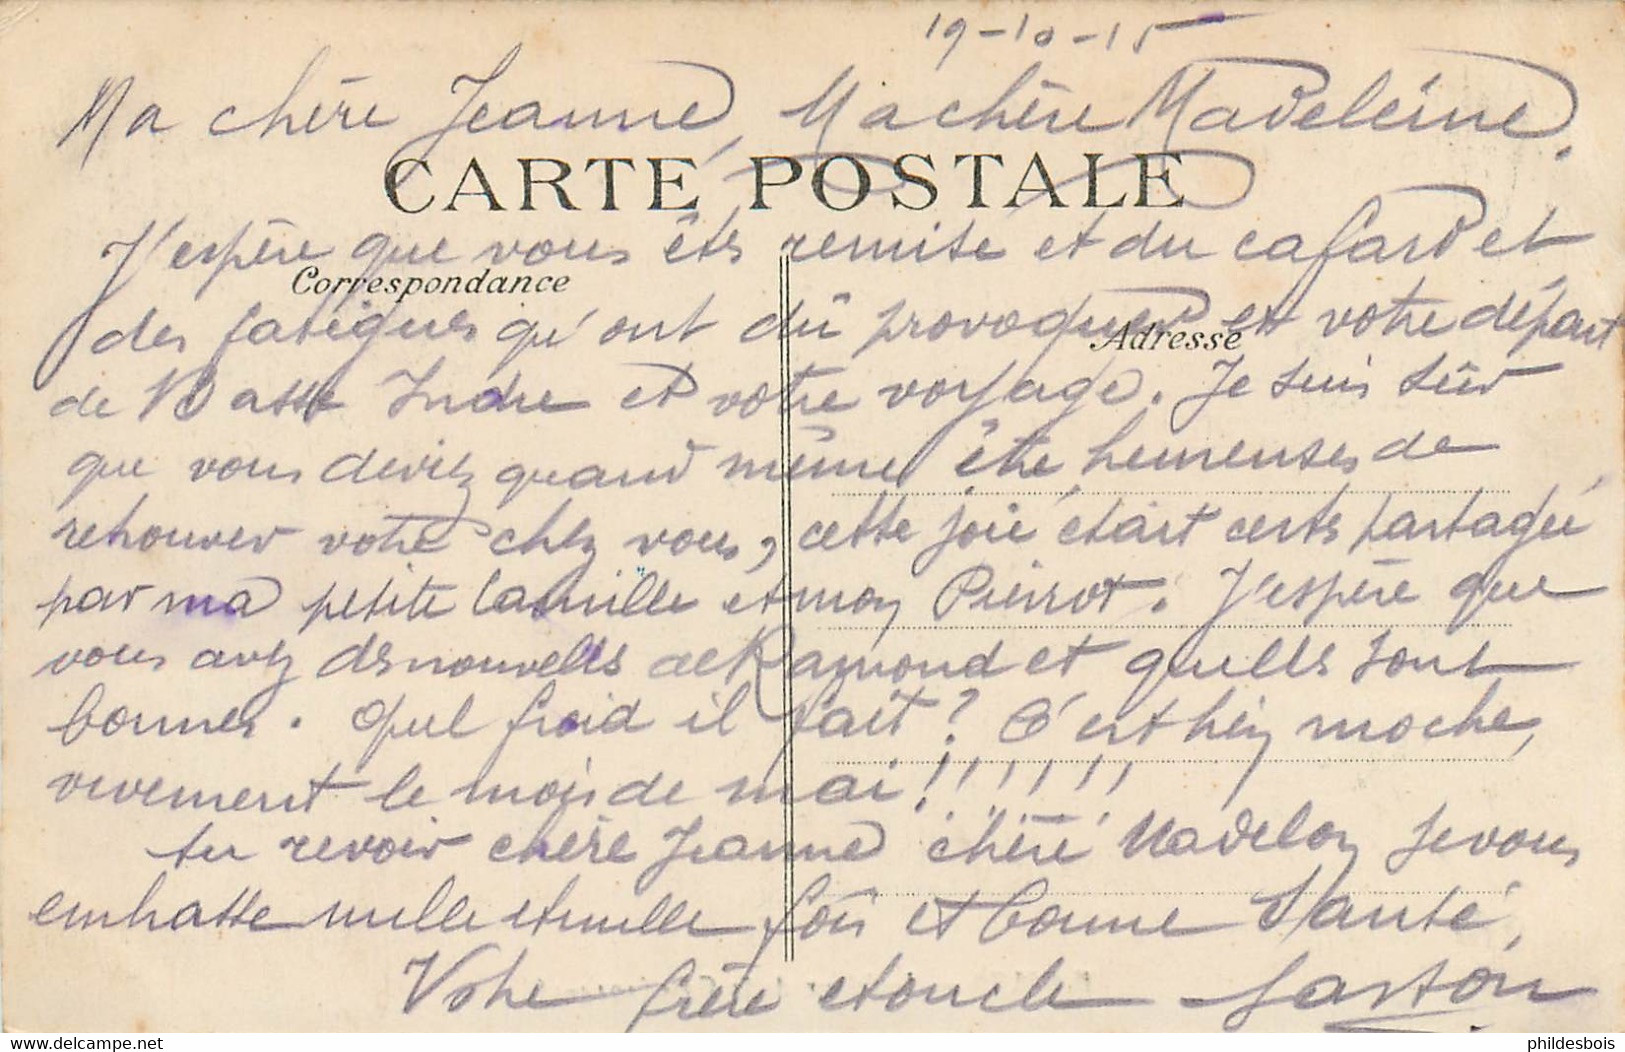 19-10-15
Ma chère Jeanne, Ma chère Madeleine.
CARTE POSTALE
J'espère que vous êts remise et du cafard et
Correspondance
des fatigues qu'ont dû provoquer et votre départ
Adresse
de Basse Indre et votre voyage. Je suis sûr
que vous deviez quand même être heureuses de
retrouver votre chez vous, cette joie était certs partagée
par ma petite famille et mon Pierrot. J'espère que
vous avez des nouvelles de Raymond et quelles sont
bonnes. Quel froid il fait? C'est hein moche,
vivement le mois de mai!!!!!!!
Au revoir chère Jeanne chère Madelon je vous
embrasse mille et mille fois et bonne Santé,
Votre frère et oncle Gaston
delcampe.net
phildesbois